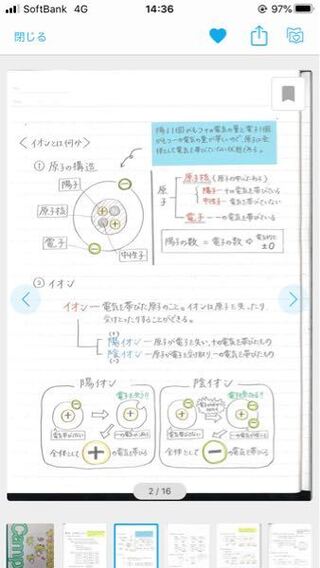 SoftBank 4G 14:36 97%
閉じる
陽子1個がもつ+の電気の量と電子1個
がもつ-の電気の量が等しいので、原子は全
体として電気を帯びていない状態である。
〈イオンとは何か〉
① 原子の構造
陽子
原子核
電子
中性子
原子
原子核(原子の中心にある)
陽子-+の電気を帯びている
中性子-電気を帯びていない
電子--の電気を帯びている
陽子の数=電子の数⇔電気的に±0
② イオン
イオン-電気を帯びた原子のこと。イオンは原子を失ったり
受けとったりすることができる。
(+)
陽イオン-原子が電子を失い、+の電気を帯びたもの
陰イオン-原子が電子を受け取り-の電気を帯びたもの
(-)
陽イオン
電子を失う!!
電気を帯びていない
全体として+の電気を帯びる
陰イオン
電気を帯びていない
全体として-の電気を帯びる
2 / 16
Campus